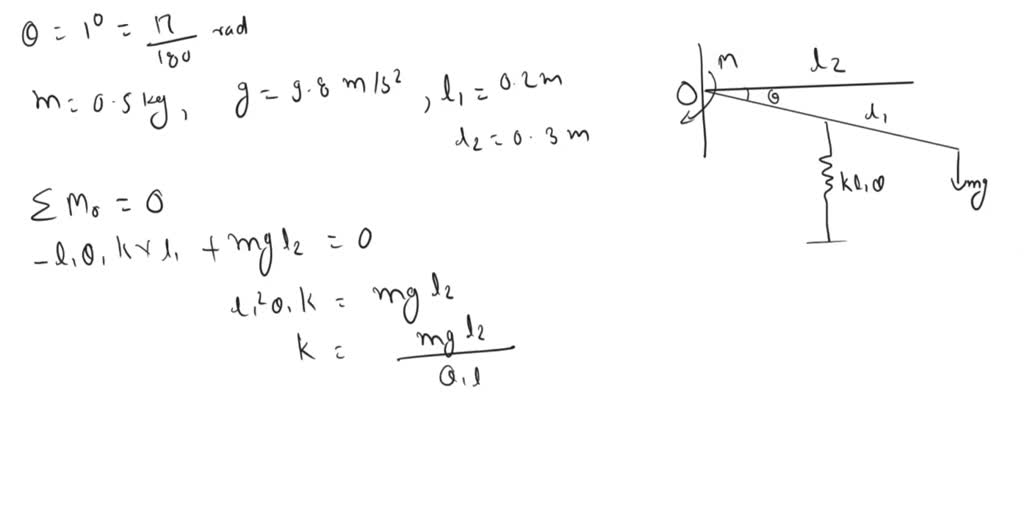 θ = 1° = π/180 rad
m = 0.5 kg, g = 9.8 m/s², l₁ = 0.2m
l₂ = 0.3 m
ΣM₀ = 0
-l₁θ₁k × l₁ + mg l₂ = 0
l₁²θ₁k = mg l₂
k = mg l₂ / θ₁l
O
M
l₂
θ
l₁
kl₁θ
mg